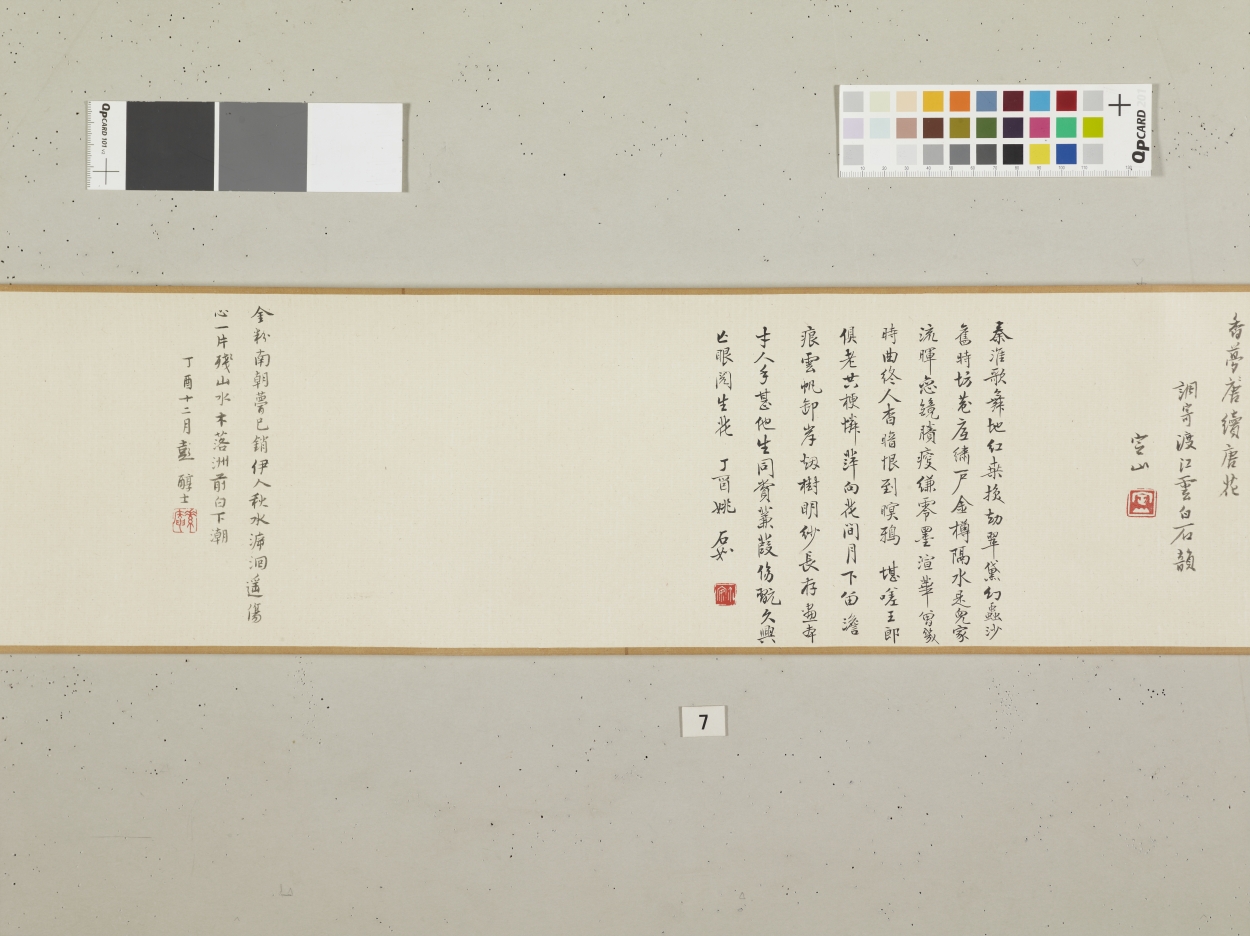 香夢唐續唐花
調寄渡江雲白石韻
空山
秦淮歌舞地紅桑換劫翠黛幻蟲沙
舊時坊巷庭繡戶金樽隔水是兒家
流暉鏡賸瘦縑零墨渲華曾幾
時曲終人杳暗恨到暝鴉 堪嗟王郎
俱老共梗憐萍向花間月下留
痕雲帆卸岸樹明紗長存畫本
才人手甚他生同賞蒹葭傷久興
亡眼閱生花 丁酉姚
金粉南朝夢已銷伊人秋水溯洄遥傷
心一片殘山水木落洲前白下潮
丁酉十二月彭醇士
7
QPCARD 101
QPCARD 201